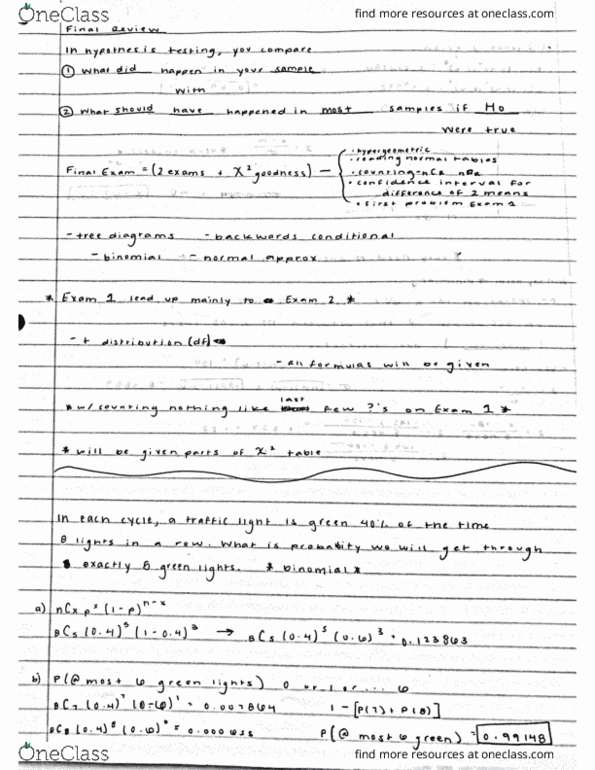 OneClass
find more resources at oneclass.com
Final Review
In hypothesis testing, you compare
① What did happen in your sample
with
② What should have happened in most samples if Ho
were true
• hypergeometric
• reading normal tables
Final Exam = (2 exams + X² goodness) — • counting-nCx nPx
• confidence interval for
difference of 2 means
• first problem Exam 1
- tree diagrams - backwards conditional
- binomial - normal approx
* Exam 1 lead up mainly to Exam 2 *
- t distribution (df)
- all formulas will be given
* w/ counting nothing like last few ?'s on Exam 1 *
* will be given parts of X² table
In each cycle, a traffic light is green 40% of the time
8 lights in a row. What is probability we will get through
exactly 8 green lights. * binomial *
a) nCx p^x (1-p)^n-x
8C5 (0.4)^5 (1-0.4)^3 → 8C5 (0.4)^5 (0.6)^3 = 0.123863
b) P(@ most 6 green lights) 0 or 1 or ... 6
8C7 (0.4)^7 (0.6)^1 = 0.007864 1 - [P(7) + P(8)]
8C8 (0.4)^8 (0.6)^0 = 0.000655 P(@ most 6 green) = 0.99148
OneClass
find more resources at oneclass.com